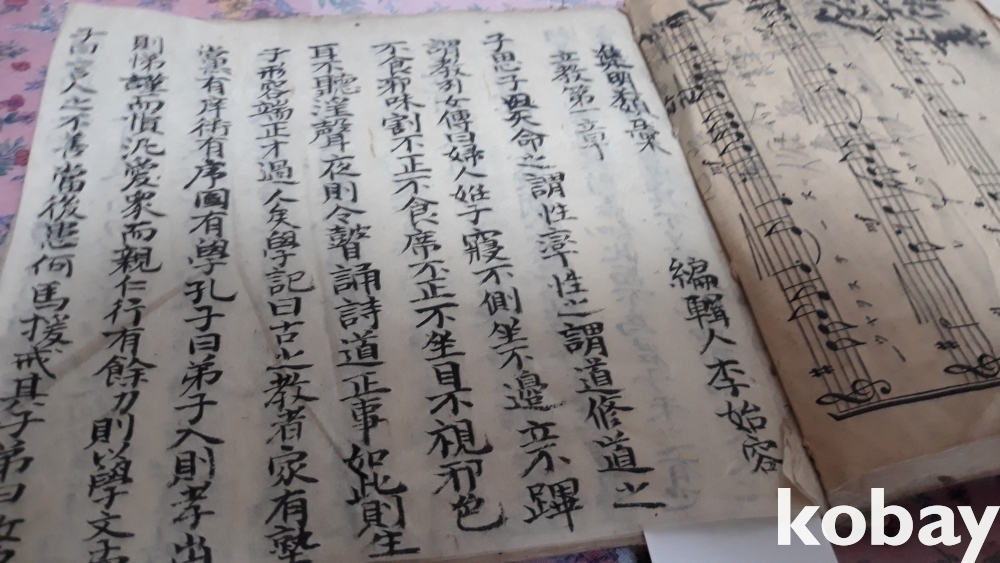 編輯人李始容
立教第一章
子思子曰天命之謂性率性之謂道修道之
謂教列女傳曰婦人姙子寢不側坐不邊立不蹕
不食邪味割不正不食席不正不坐目不視邪色
耳不聽淫聲夜則令瞽誦詩道正事如此則生
子形容端正才過人矣學記曰古之教者家有塾
黨有庠術有序國有學孔子曰弟子入則孝出
則悌謹而愼汎愛衆而親仁行有餘力則以學文孟
子曰言人之不善當後患何馬援戒其子弟曰汝
kobay